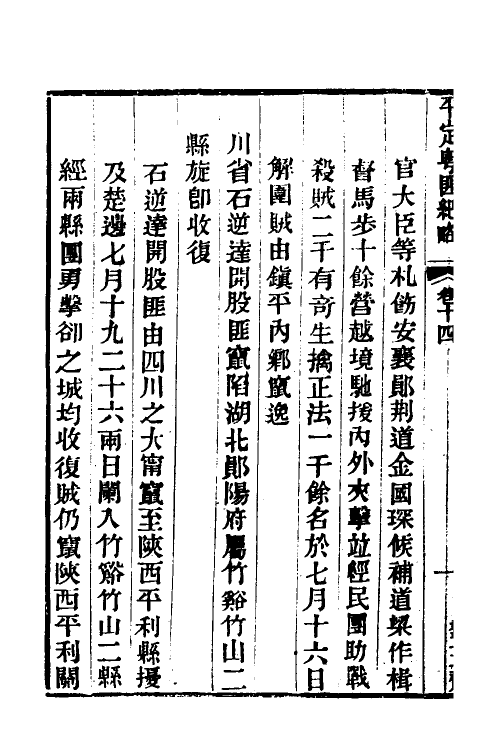 平定粵匪紀略 卷十四
官大臣等札飭安襄鄖荆道金國琛候補道梁作楫
督馬步十餘營越境馳援內外夾擊竝經民團助戰
殺賊二千有奇生擒正法一千餘名於七月十六日
解圍賊由鎭平內鄉竄逸
川省石逆達開股匪竄陷湖北鄖陽府屬竹谿竹山二
縣旋卽收復
石逆達開股匪由四川之大甯竄至陝西平利縣擾
及楚邊七月十九二十六兩日闌入竹谿竹山二縣
經兩縣團勇擊卻之城均收復賊仍竄陝西平利關